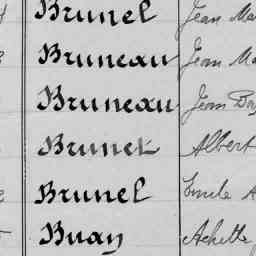 Brunel Jean Ma
Bruneau Jean Ma
Bruneau Jean Bap
Brunet Albert
Brunel Emile A
Buay Achille